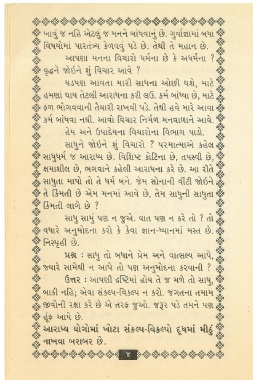 ખાવું જ નહિ એટલું જ મનને બાંધવાનું છે. ગુર્વાજ્ઞામાં બધા
વિષયોમાં પારતંત્ર્ય કેળવવું પડે છે. તેથી તે મહાન છે.
આપણા મનના વિચારો ધર્મના છે કે અધર્મના ?
વૃદ્ધને જોઇને શું વિચાર આવે ?
ઘડપણ આવતા મારી સાધના ઓછી થશે, માટે
હમણાં થાય તેટલી આરાધના કરી લઉં. કર્મ બાંધ્યા છે, માટે
ફળ ભોગવવાની તૈયારી રાખવી પડે. તેથી હવે મારે આવા
કર્મ બાંધવા નથી. આવો વિચાર નિર્મળ મનવાળાને આવે.
હેય અને ઉપાદેયના વિચારોના વિભાગ પાડો.
સાધુને જોઇને શું વિચારો ? પરમાત્માએ કહેલ
સાધુધર્મ જ આરાધ્ય છે. વિશિષ્ટ કોટિના છે, તપસ્વી છે,
ક્ષમાશીલ છે, ભગવાને કહેલી આરાધના કરે છે. આ રીતે
સાધુતા માપો તો તે ધર્મ બને. જેમ સોનાની વીંટી જોઇને
તે કિંમતી છે એમ મનમાં આવે છે, તેમ સાધુની સાધુતા
કિંમતી લાગે છે ?
સાધુ સામું પણ ન જુએ. વાત પણ ન કરે તો ? તો
વધારે અનુમોદના કરો કે કેવા જ્ઞાન-ધ્યાનમાં મસ્ત છે.
નિસ્પૃહી છે.
પ્રશ્ન : સાધુ તો બધાને પ્રેમ અને વાત્સલ્ય આપે,
જ્યારે સામેથી ન આપે તો પણ અનુમોદના કરવાની ?
ઉત્તર : આપણી દૃષ્ટિમાં હોય તે જ મળે તો સાધુ,
બાકી નહિ; એવા સંકલ્પ-વિકલ્પ ન કરો. જગતના તમામ
જીવોની રક્ષા કરે છે એ તરફ જુઓ. જરૂર પડે તમને પણ
હૂંફ આપે છે.
આરાધ્ય યોગોમાં ખોટા સંકલ્પ-વિકલ્પો દૂધમાં મીઠું
નાખવા બરાબર છે.
૪